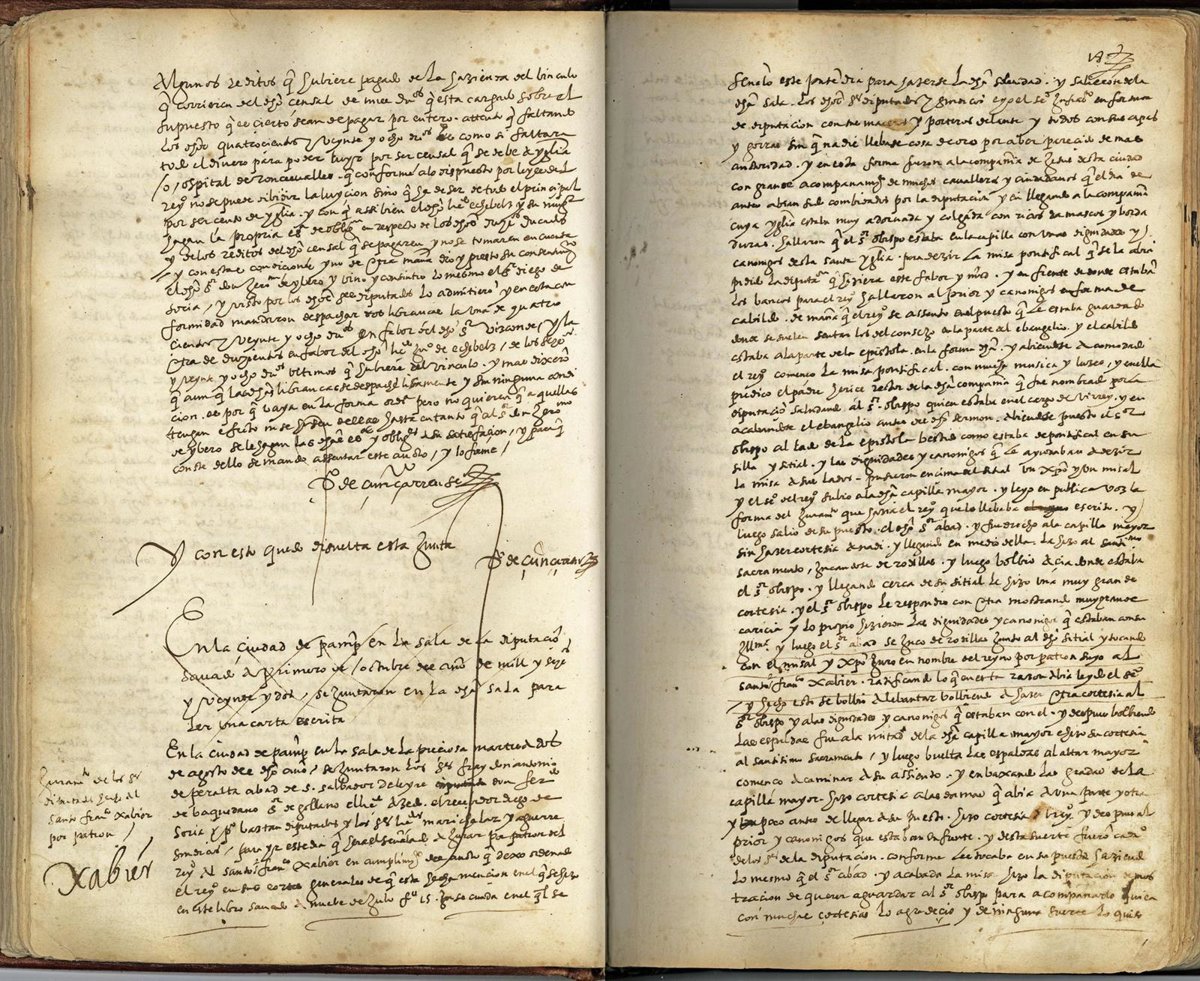 Algunos reditos q̃ hubiere pagado de la hazienda del binculo
q̃ corrieren del dho censal de mill du.os q̃ esta cargado sobre el
supuesto q̃ es cierto sean de pagar por entero. attento q̃ faltando
los dhos quatrocientos y veynte y ocho du.os es como si faltara
todo el dinero para poder luyr por ser censal q̃ se debe a yglia
o ospital de roncesvalles. q̃ conforme a lo dispuesto por leyes del
reyno no se puede ribibir la luycion sino q̃ ha de ser de todo el principal
por ser censo de yglia. y con q̃ assi bien el dho
hagan la propria de oblig.on en respecto de los dhos ducados
y de los reditos del dho censal q̃ se pagaren y no se tomaren en cuenta
y con estas condiciones y no de otra manera dio y presto su consentimi.to
el dho s.r don de ybero y vino y consintio lo mesmo el s.r diego de
soria, y visto por los dhos ss.es diputados lo admitierõ y en esta con
formidad mandaron despachar dos librancas la una de quatro
cientos y veynte y ocho du.os en fabor del dho s.r vizconde y la
otra de duzientos en fabor del dho de echebelz, de los
y veynte y ocho du.os ultimos q̃ hubiere del vinculo. y mas dixerõ
q̃ aunq̃ las dhas librancas se despachã libremente y sin ninguna condi
cion. es por q̃ vaya en la forma ord.a pero no quieren q̃ aquellas
tengan efecto ni se husen dellas hasta en tanto q̃ al s.r don
de ybero se le hagan las dhas y oblig.es a su satisfacion, y paraq̃
conste dello se mando assentar este aucto, y lo fame,
P.o de çunçarren se.
Y con esto quedo disuelta esta Junta
P.o de çunçarren
En la ciudad de pamp.a en la sala de la diputació
savado a primero de octubre del año de mill y seys.
y veynte y dos, se juntaron en la dha sala para
ler una carta escrita
Juram.to de los ss.es
diputados hecho al
santo fran.co Xabier
por patron
Xabiér
En la ciudad de pamp.a en la sala de la preciosa martes a dos
de agosto del dho año, se juntaron los ss.es fray don antonio
de peralta abad de s. salvador de leyre don fer.do
de baquedano s.r de gollano el lic.do el reendor diego de
Soria y p.o bastan diputados y los ss.es lic.dos mari y aguerre
sindicos, para yr este dia q̃ era el señalado a Jurar por patron del
rey.o al santo fran.co Xabier en cumplimi.to del aucto q̃ dexo ordenado
el reyno en sus cortes generales de q̃ esta hecha mencion en el q̃ se hizo
en este libro savado a nuebe de Julio fo. 15. por su cuenda en el ql se
señalo este puntedria para haserse la dha solenidad. y salieron de la
dha sala. los dhos ss.es diputados y sindicos e yo el s.rio en forma
de diputacion con sus maceros y porteros delante y todos con sus capas
y gorras sin q̃ nadie llebase cosa de oro por aber parecido de mas
autoridad. y en esta forma fueron a la compañia de Jesus desta ciudad
con grande acompañam.to de muchos cavalleros y ciudadanos q̃ el dia de
antes abian sido combidados por la diputacion, y en llegando a la compañia
cuya yglia estaba muy adornada y colgada con ricos damascos y borda
duras. hallaron q̃ el s.r obispo estaba en la capilla con unas dignidades y
canonigos desta santa yglia. para dezir la misa pontifical q̃ se la abia
pedido la diputa.on q̃ hiziera este fabor y m.d. y en frente de donde estaban
los bancos para el rey.o hallaron al prior y canonigos en forma de
cabildo. de manera q̃ el rey.o se assento en el puesto q̃ le estaba guardado
donde se suelen sentar los del consejo en la parte del ebangelio. y el cabildo
estaba a la parte de la epistola. en la forma dha. y abiendose acomodado
el rey.o començo la misa pontifical. con mucha musica y luzes, y en ella
predico el padre Jerice retor de la dha compañia q̃ fue nombrado por la
diputacio saludando al s.r obispo quien estaba en el cargo de virrey. y en
acabando el ebangelio antes del sermon. abiendose puesto el s.or
obispo al lado de la epistola bestido como estaba de pontifical en su
silla y sitial. y las dignidades y canonigos q̃ le ayudaban a dezir
la misa a sus lados. pusieron encima del sitial un xpõ y un misal
y el se.rio del rey.o subio a la dha capilla mayor. y leyo en publica voz la
forma del Juram.to que haria el rey.o que lo llebaba escrito. y
luego salio de su puesto. el dho s.r abad. y fue drecho a la capilla mayor
sin haser cortesia a nadi. y llegando en medio della. la hizo al santi.mo
sacramento, hincandose de rodillas. y luego bolbio acia donde estaba
el s.r obispo. y llegando cerca de su sitial le hizo una muy grande
cortesia. y el s.r obispo le respondio con otra mostrando muy grande
caricia y lo propio hizieron las dignidades y canonigos q̃ estaban con su
Illm.a y luego el s.r abad se hinco de rodillas junto al dho sitial y tocando
con el misal y xpõ Juro en nombre del reyno por patron suyo al
santo fran.co Xabier. ratificando lo q̃ en esta razon abia leydo el se.rio
y hecho esto se bolbio a lebantar bolbiendo a haser otra cortesia al
s.r obispo y a las dignidades y canonigos q̃ estaban con el. y despues bolbiendo
las espaldas fue a la mitad de la dha capilla mayor e hizo su cortesia
al santisimo sacramento, y luego buelta las espaldas al altar mayor
començo a caminar a su assiento. y en baxando las gradas de la
capilla mayor. hizo cortesia a las damas q̃ abia de una parte y otra
y un poco antes de llegar a su puesto. hizo cortesia al rey.o y despues al
prior y canonigos que estaban en frente. y desta suerte fuerõ cada uno
de los ss.es de la diputacion. conforme les tocaba en su puesto haziendo
lo mesmo q̃ el s.r abad. y acabada la misa. hizo la diputacion demos
tracion de querer aguardar al s.r obispo para acompañarlo quien
con muchas cortesias lo agradecio y de ninguna suerte lo quiso